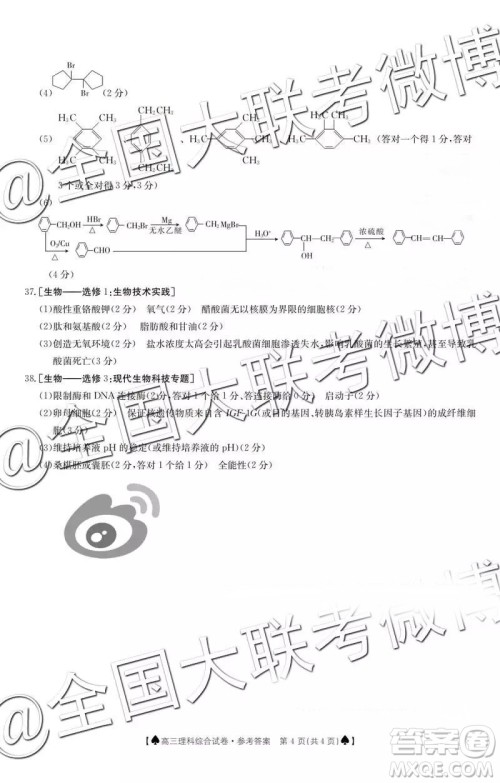 Br
Br
(4) (2分)
(5) H₃C CH₃ CH₂CH₃ 、H₃C CH₃ CH₃ (答对一个得1分,答对
3个或全对得3分,3分)
(6)
CH₂OH HBr △ CH₂Br Mg 无水乙醚 CH₂MgBr H₃O⁺ CH—CH₂ OH 浓硫酸 △ CH=CH
O₂/Cu △ CHO
(4分)
37.[生物——选修1:生物技术实践]
(1)酸性重铬酸钾(2分) 氧气(2分) 醋酸菌无以核膜为界限的细胞核(2分)
(2)肽和氨基酸(2分) 脂肪酸和甘油(2分)
(3)创造无氧环境(2分) 盐水浓度太高会引起乳酸菌细胞渗透失水,影响乳酸菌的生长繁殖,甚至导致乳
酸菌死亡(3分)
38.[生物——选修3:现代生物科技专题]
(1)限制酶和DNA连接酶(2分,答对1个给1分,答连接酶不给分) 启动子(2分)
(2)卵母细胞(2分) 保证核遗传物质来自含IGF-1G(或目的基因、转胰岛素样生长因子基因)的成纤维细
胞(3分)
(3)维持培养液pH的稳定(或维持培养液的pH)(2分)
(4)桑椹胚或囊胚(2分,答对1个给1分) 全能性(2分)
@全国大联考微博
@全国大联考微博
@全国大联考微博
【♠高三理科综合试卷·参考答案 第4页(共4页)♠】
作业帮
MXEQE.COM